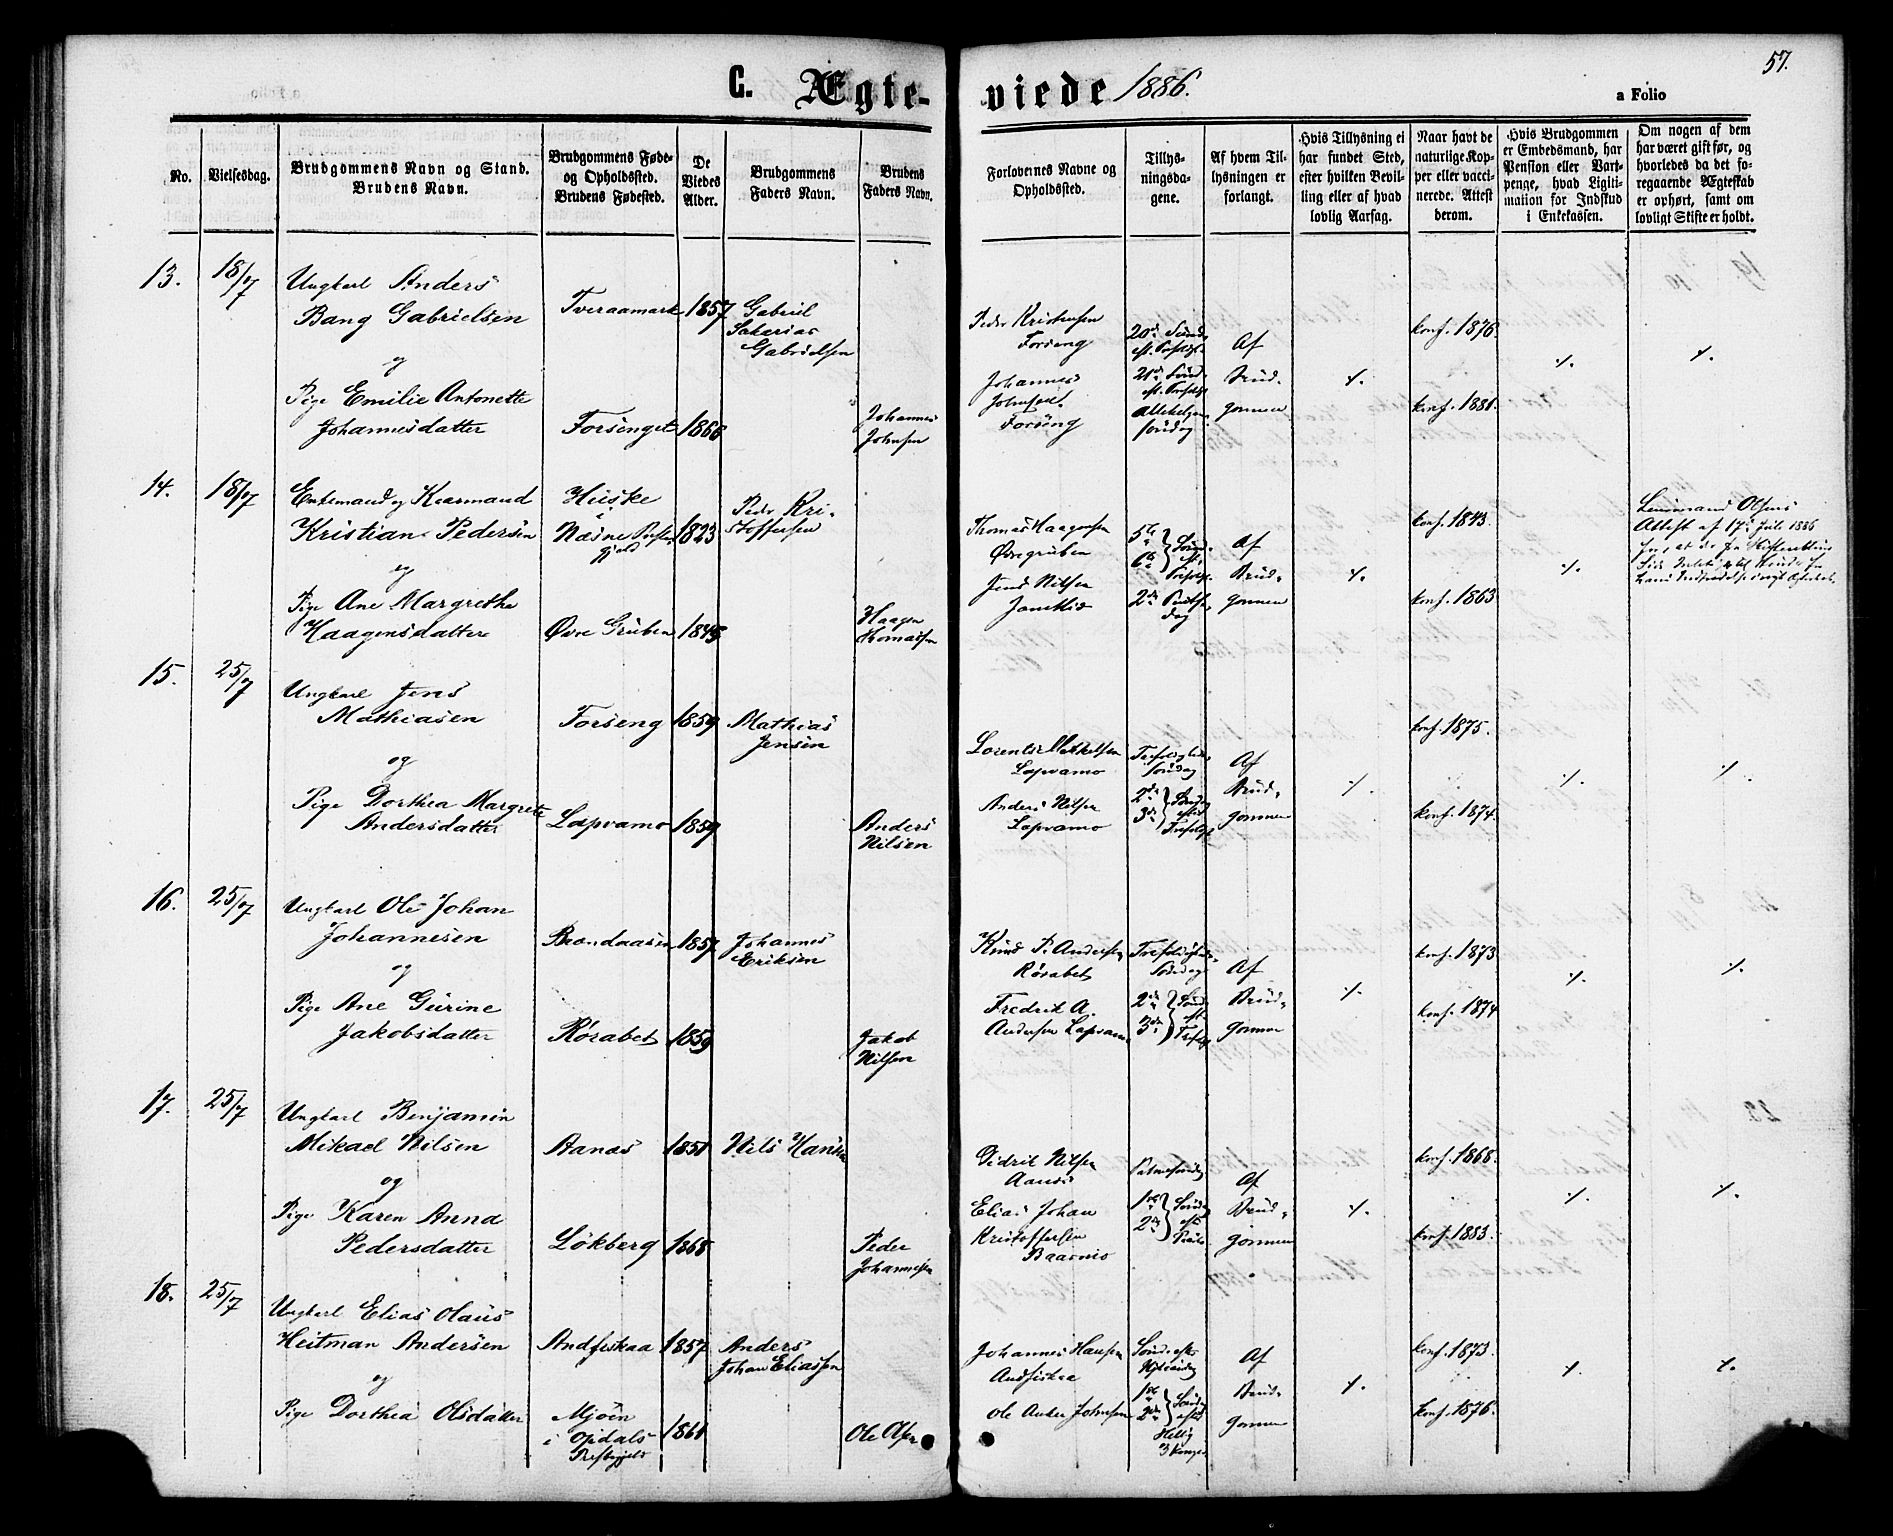 57.
C. Ægte-viede 1886.
a Folio
No.
Vielsesdag.
Brudgommens Navn og Stand.
Brudens Navn.
Brudgommens Føde-
og Opholdssted.
Brudens Fødested.
De
Viedes
Alder.
Brudgommens
Faders Navn.
Brudens
Faders Navn.
Forlovernes Navne og
Opholdssted.
Tillys-
ningsda-
gene.
Af hvem Til-
lysningen er
forlangt.
Hvis Tillysning ei
har fundet Sted,
efter hvilken Bevil-
ling eller af hvad
lovlig Aarsag.
Naar havt de
naturlige Kop-
per eller vacci-
nerede. Attest
derom.
Hvis Brudgommen
er Embedsmand, har
Pension eller Vart-
penge, hvad Ligiti-
mation for Indskud
i Enkekassen.
Om nogen af dem
har været gift før, og
hvorledes da det fo-
regaaende Ægteskab
er ophørt, samt om
lovligt Skifte er holdt.
13.
18/7
Ungkarl Anders
Bang Gabrielsen
og
Pige Emilie Antonette
Johannesdatter
Tveraamark
Forsenget
1857
1866
Gabriel
Sakarias
Gabrielsen
Johannes
Johnsen
Peder Kristensen
Forseng
Johannes
Johnsen
Forseng
20de Sønd.
eft. Trefoldgh.
21de Sønd.
eft. Trefoldgh.
Allehelgen
søndag
Af
Brud-
gommen
./.
konf. 1876.
konf. 1881.
./.
./.
14.
18/7
Enkemand og Kaarmand
Kristian Pedersen
og
Pige Ane Margrethe
Haagensdatter
Huske
i
Næsne Preste
gjeld
Øvre Gruben
1823
1845
Peder Kri-
stoffersen
Haagen
Thomassen
Thomas Haagensen
Øvregruben
Jens Nilsen
Jamtlid
5te
6te
Sønd.
eft.
Trefoldgh.
2den Pintse
dag
Af
Brud-
gommen
./.
konf. 1843.
konf. 1863
./.
Lensmand Olsens
Attest af 17de Juli 1886
15.
25/7
Ungkarl Jens
Mathiasen
og
Pige Dorthea Margrete
Andersdatter
Forseng
Lapvamo
1859
1859
Mathias
Jensen
Anders
Nilsen
Lorents Mikkelsen
Lapvamo
Anders Nilsen
Lapvamo
Trefoldigheds
søndag
2den
3die
Søndag
efter
Trefoldgh
Af
Brud-
gommen
./.
konf. 1875.
konf. 1874.
./.
./.
16.
25/7
Ungkarl Ole Johan
Johannesen
og
Pige Ane Gurine
Jakobsdatter
Brændaasen
Rørabet
1857
1859
Johannes
Eriksen
Jakob
Nilsen
Knud P. Andersen
Rørabet
Fredrik A.
Andersen Lapvamo
Trefoldigheds-
Søndag
2den
3die
Sønd.
eft.
Trefoldgh
Af
Brud-
gommen
./.
konf. 1873
konf. 1874
./.
./.
17.
25/7
Ungkarl Benjamin
Mikael Nilsen
og
Pige Karen Anna
Pedersdatter
Aanæs
Løkberg
1851
1868
Nils Hansen
Peder
Johannessen
Didrik Nilsen
Aanæs
Elias Johan
Kristoffersen
Baarnes
Palmesøndag
1ste
2den
Søndag
efter
Paaske
Af
Brud-
gommen
./.
konf. 1868.
konf. 1883.
./.
./.
18.
25/7
Ungkarl Elias Olaus
Heitman Andersen
og
Pige Dorthea Olsdatter
Andfiskaa
Mjøen
i Opdals
Prestegjeld
1857
1861
Anders
Johan Eliassen
Ole
Johannes Hansen
Andfiskaa
Ole Andr. Johnsen
Sønd. efter
Nytaarsdag
1ste
2den
Søndag
efter
Hellig
3 Konger
Af
Brud-
gommen
./.
konf. 1873.
konf. 1876.
./.
./.